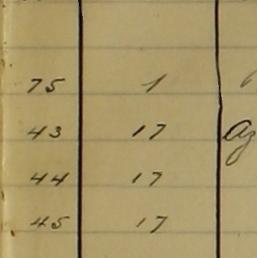 75 1
43 17 Az
44 17
45 17